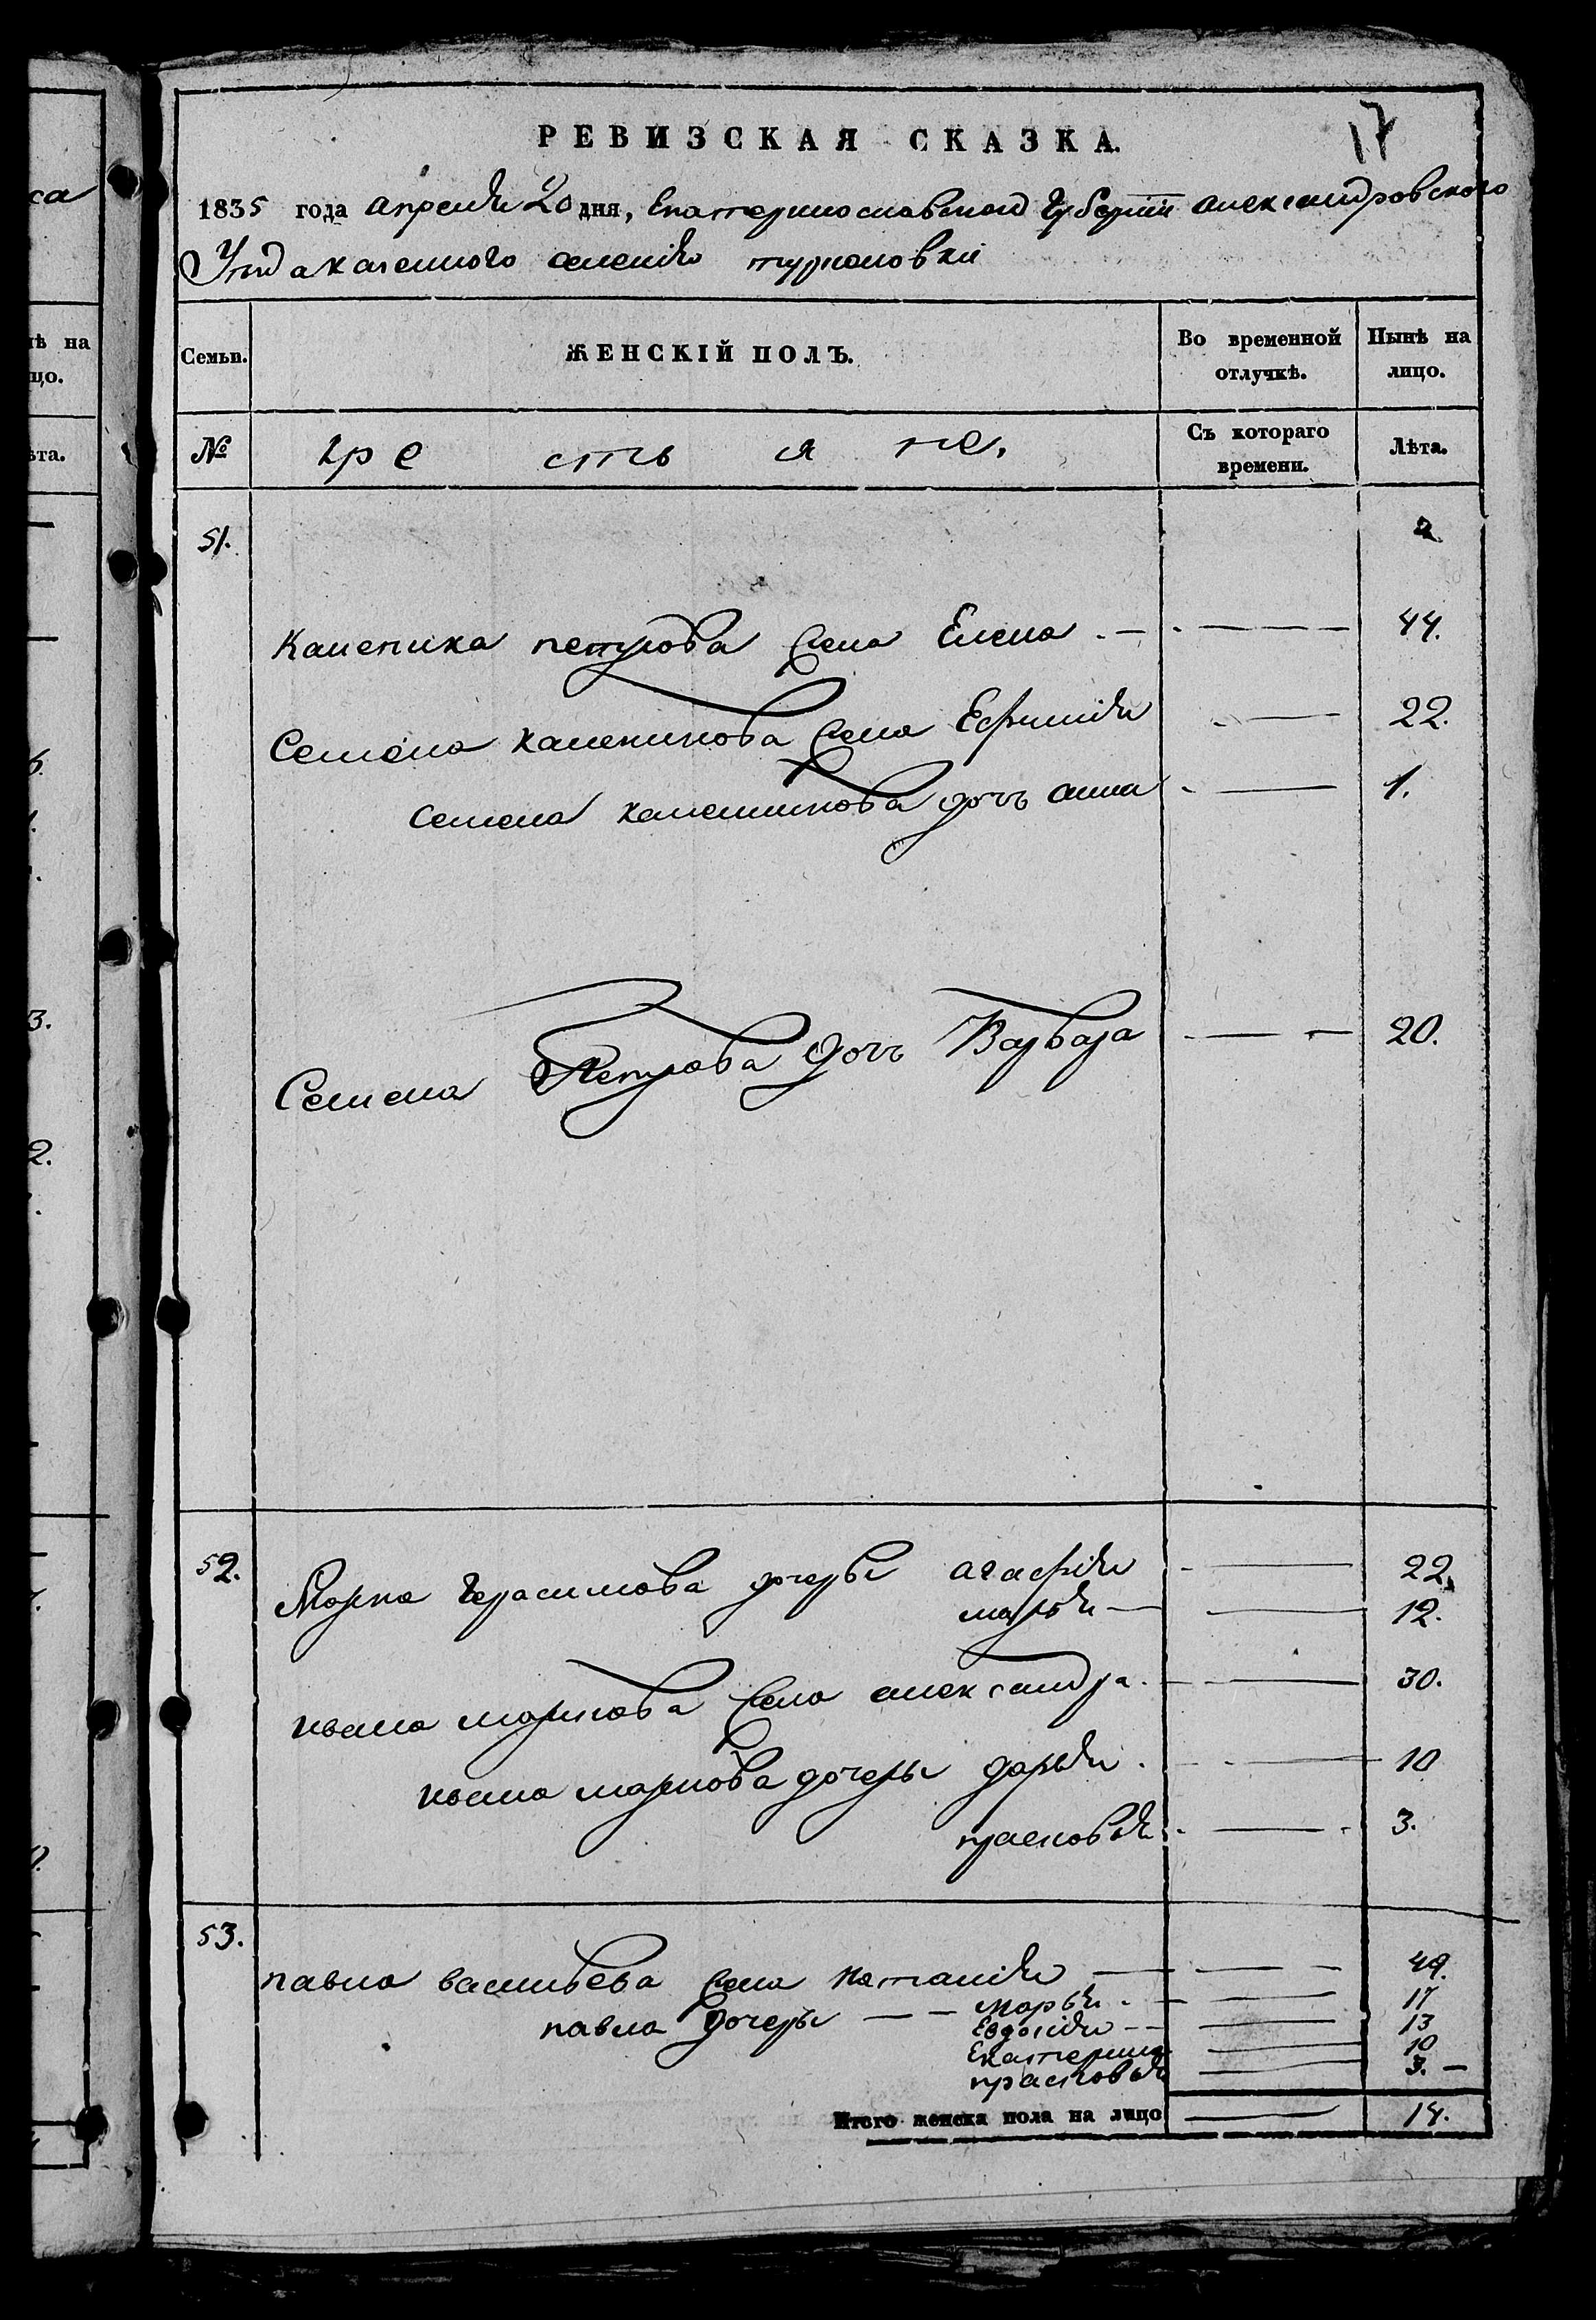 17
РЕВИЗСКАЯ СКАЗКА.
1835 года апреля 20 дня, Екатеринославской Губернии александровского
Уезда казенного селения туркеновки
Семьи. ЖЕНСКІЙ ПОЛЪ. Во временной отлучкѣ. Нынѣ на лицо.
№ крестьяне. Съ котораго времени. Лѣта.
51. 2
каленика петрова жена Елена 44.
Семена каленикова жена Ефимия 22.
семена каленикова дочь анна 1.
Семена Петрова дочь Варвара 20.
52. Марка герасимова дочери агафия 22.
марья 12.
ивана маркова жена александра 30.
ивана маркова дочери дарья 10
прасковья 3.
53.
павла васильева жена наталия 49.
павла дочери марья 17
Евдокия 13
Екатерина 10
прасковья 3.
Итого женска пола на лицо 14.
са
нѣ на
цо.
ѣта.
3.
2.